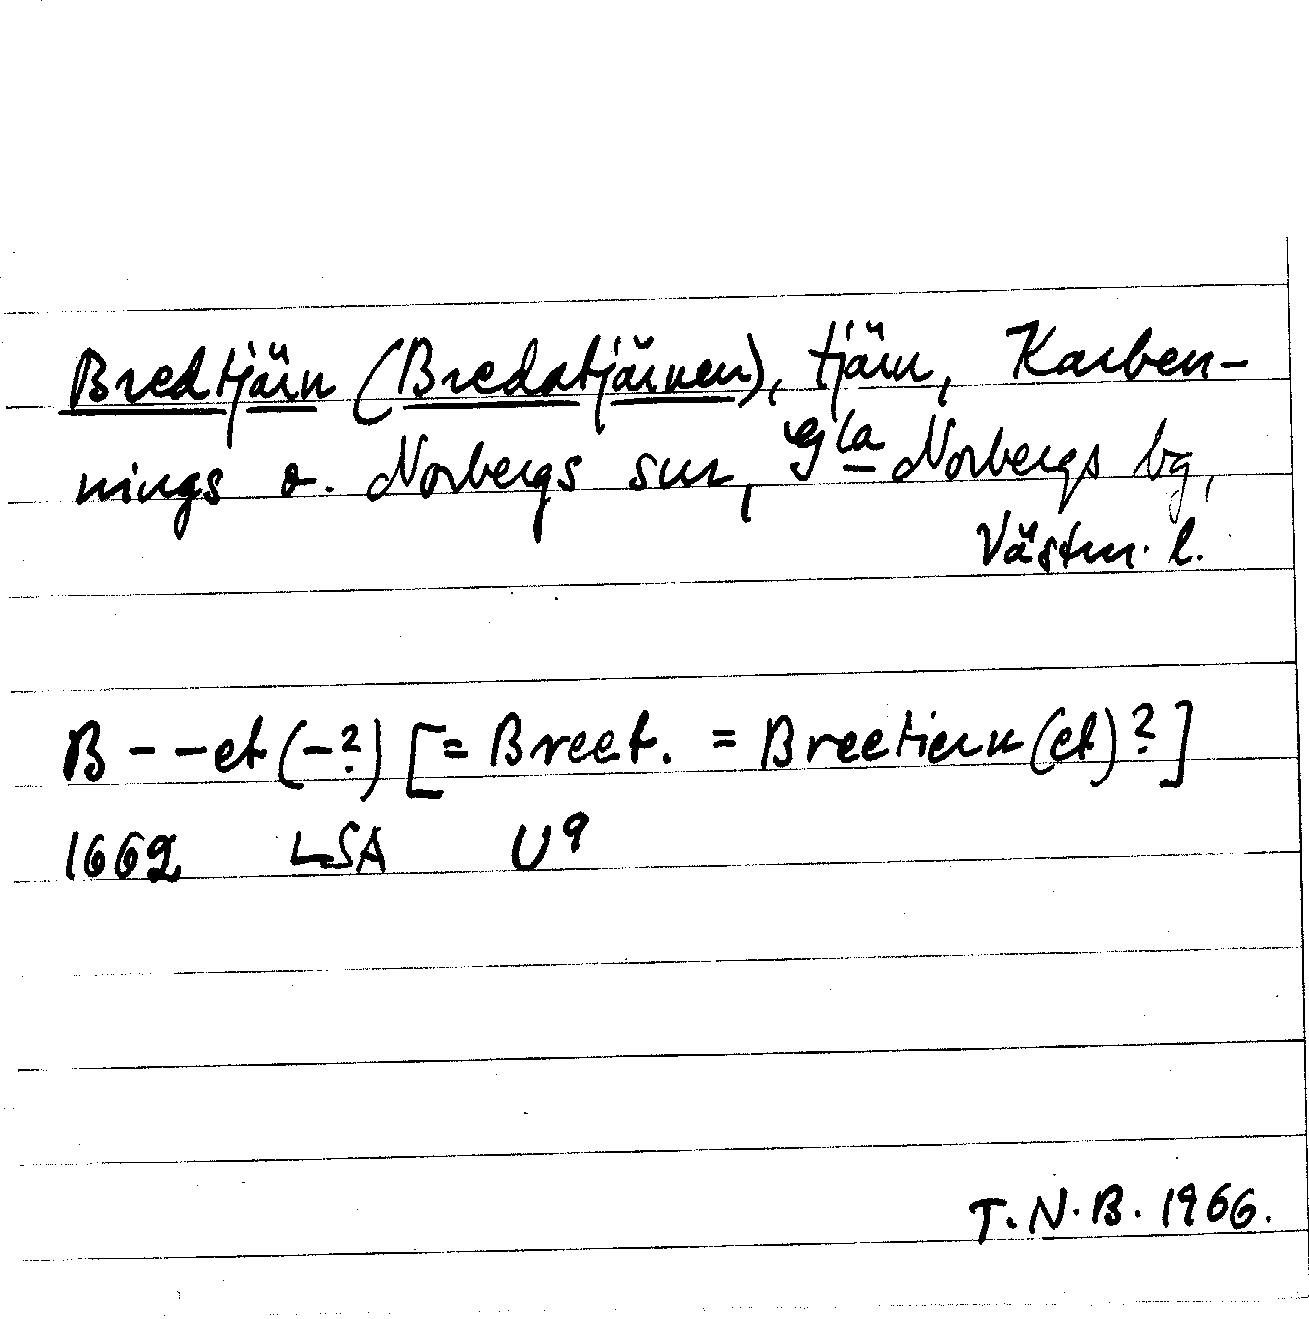 Bredtjärn (Bredatjärnen), tjärn, Karben-
nings o. Norbergs snr, Gla Norbergs bg,
Västm. l.
B - - et (-?) [= Breet. = Breetiern (et)?]
1662 LSA U9
T.N.B. 1966.